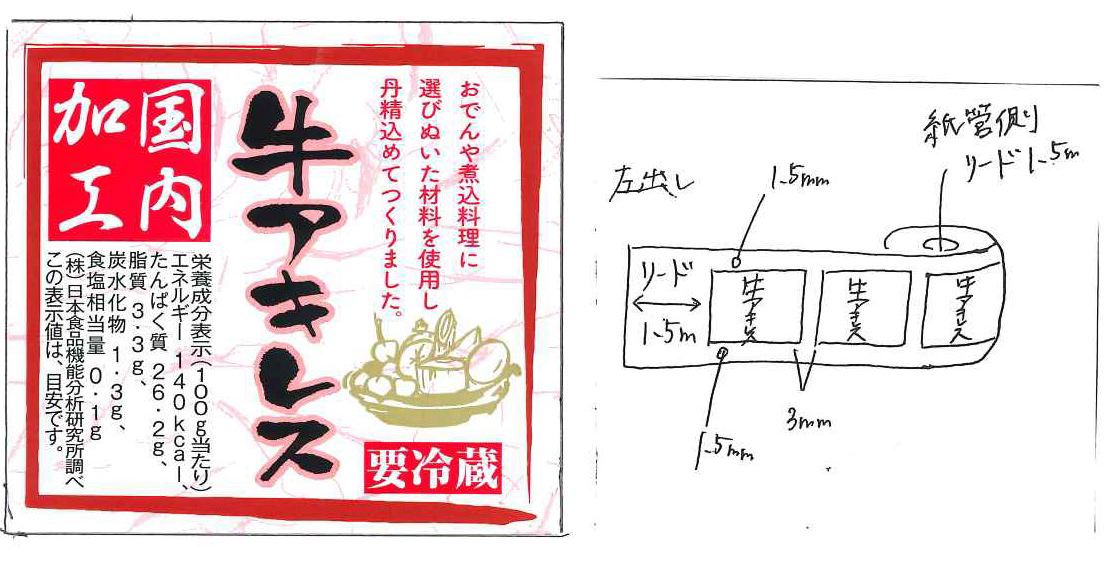 おでんや煮込料理に
選びぬいた材料を使用し
丹精込めてつくりました。
牛アキレス
国内
加工
栄養成分表示(100g当たり)
エネルギー 140kcal、
たんぱく質 26.2g、
脂質 3.3g、
炭水化物 1.3g、
食塩相当量 0.1g
(株)日本食品機能分析研究所調べ
この表示値は、目安です。
要冷蔵
紙管側
リード1.5m
左出し
1.5mm
リード
1.5m
牛アキレス
牛アキレス
牛アキレス
3mm
1.5mm